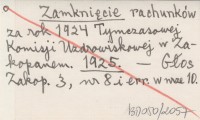 Zamknięcie rachunków
za rok 1924 Tymczasowej
Komisji Uzdrowiskowej w Za-
kopanem. 1925. — Głos
Zakop. 3, nr 8 i err. w nrze 10.